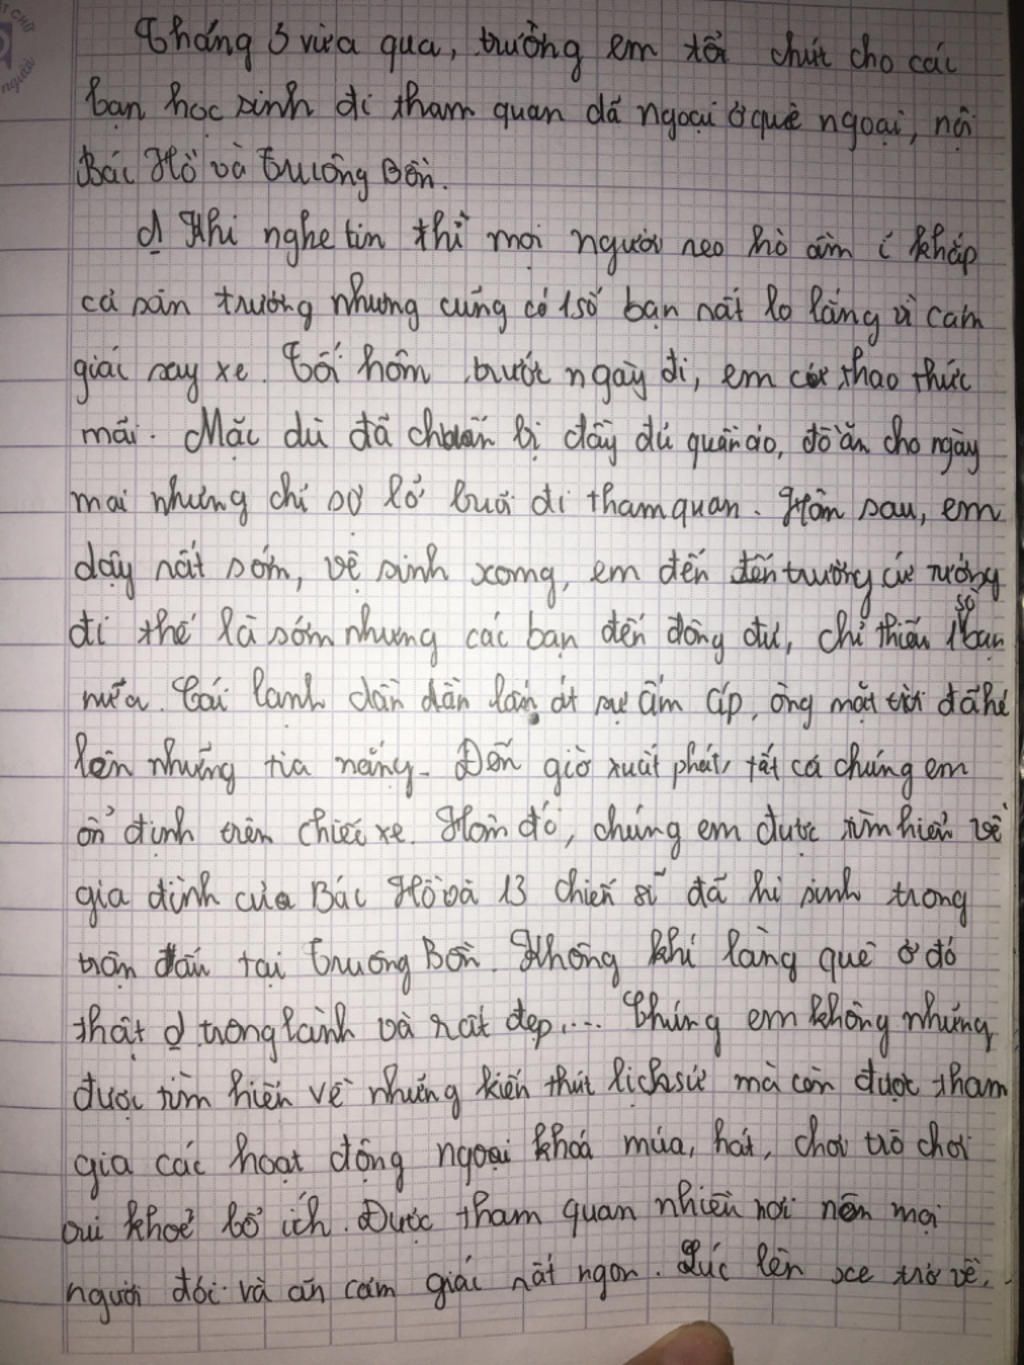 Tháng 3 vừa qua, trường em tổ chức cho các
bạn học sinh đi tham quan dã ngoại ở quê ngoại, nội
Bác Hồ và Truông Bồn.
Khi nghe tin thì mọi người reo hò ầm ĩ khắp
cả sân trường nhưng cũng có 1 số bạn rất lo lắng vì cảm
giác say xe. Tối hôm trước ngày đi, em cứ thao thức
mãi. Mặc dù đã chuẩn bị đầy đủ quần áo, đồ ăn cho ngày
mai nhưng chỉ sợ lỡ buổi đi tham quan. Hôm sau, em
dậy rất sớm, vệ sinh xong, em đến đến trường cứ tưởng
đi thế là sớm nhưng các bạn đến đông đủ, chỉ thiếu 1 số bạn
nữa. Cái lạnh dần dần lấn át sự ấm áp, ông mặt trời đã hé
lên những tia nắng. Đến giờ xuất phát, tất cả chúng em
ổn định trên chiếc xe. Hôm đó, chúng em được tìm hiểu về
gia đình của Bác Hồ và 13 chiến sĩ đã hi sinh trong
trận đấu tại Truông Bồn. Không khí làng quê ở đó
thật trong lành và rất đẹp.... Chúng em không những
được tìm hiểu về những kiến thức lịch sử mà còn được tham
gia các hoạt động ngoại khoá múa, hát, chơi trò chơi
vui khoẻ bổ ích. Được tham quan nhiều nơi nên mọi
người đói và ăn cảm giác rất ngon. Lúc lên xe trở về,